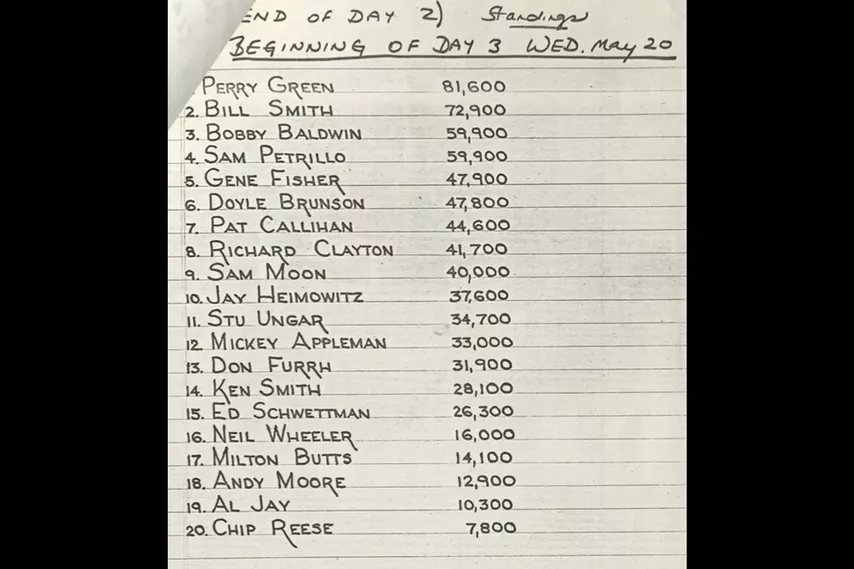 END OF DAY 2) Standings
BEGINNING OF DAY 3 WED. May 20
PERRY GREEN 81,600
2. BILL SMITH 72,900
3. BOBBY BALDWIN 59,900
4. SAM PETRILLO 59,900
5. GENE FISHER 47,900
6. DOYLE BRUNSON 47,800
7. PAT CALLIHAN 44,600
8. RICHARD CLAYTON 41,700
9. SAM MOON 40,000
10. JAY HEIMOWITZ 37,600
11. STU UNGAR 34,700
12. MICKEY APPLEMAN 33,000
13. DON FURRH 31,900
14. KEN SMITH 28,100
15. ED SCHWETTMAN 26,300
16. NEIL WHEELER 16,000
17. MILTON BUTTS 14,100
18. ANDY MOORE 12,900
19. AL JAY 10,300
20. CHIP REESE 7,800